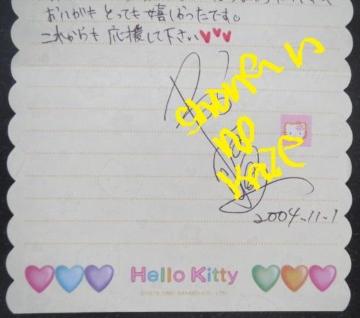 おハガキ とっても嬉しかったです。
これからも 応援して下さい♥♥♥
shonen
no
kaze
2004-11-1
Hello Kitty